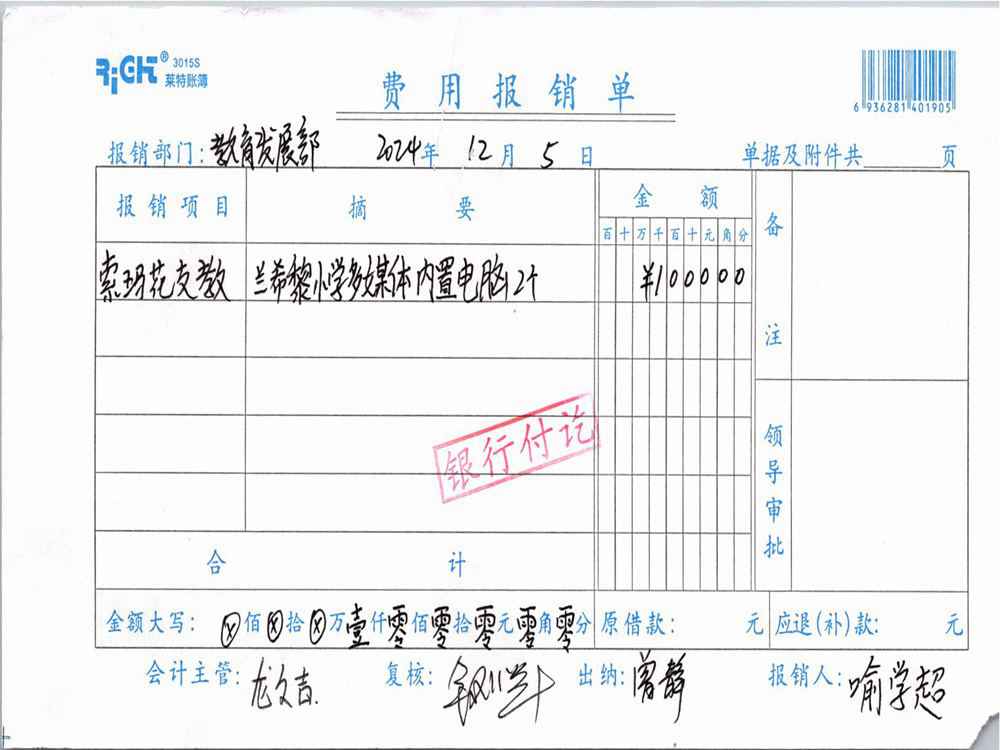 RiGHT® 3015S
莱特账簿
费用报销单
6 936281 401905
报销部门：教育发展部 2024年 12月 5日 单据及附件共 页
报销项目 摘要 金额 备注
百十万千百十元角分
索玛花支教 兰希黎小学多媒体内置电脑12个 ¥100000
银行付讫
领导审批
合计
金额大写：ⓧ佰ⓧ拾ⓧ万壹仟零佰零拾零元零角零分 原借款： 元 应退(补)款： 元
会计主管：龙文吉 复核： 出纳：曾静 报销人：喻学超